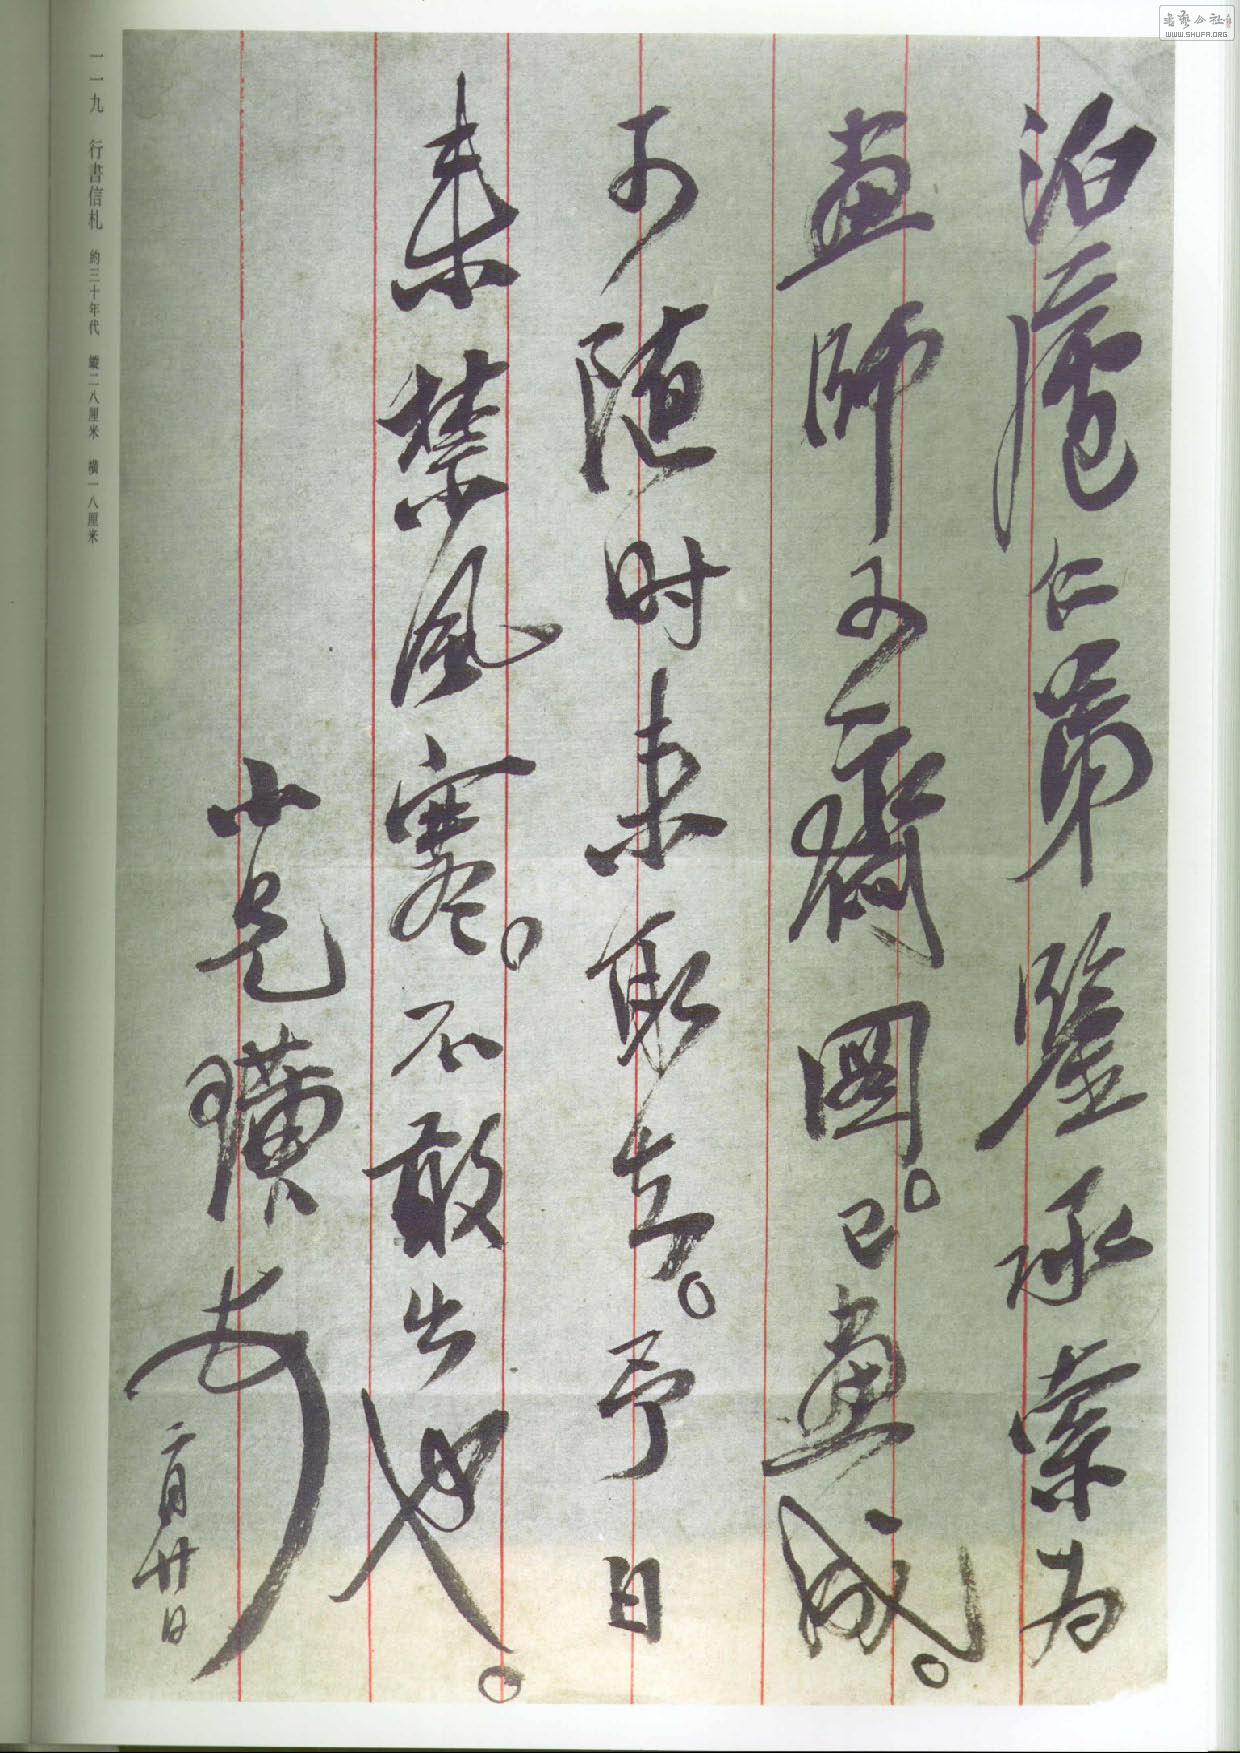 泊廬仁弟鑒承索为
畫師子齋圖。已畫成。
可随时来取去。予日
来禁風寒。不敢出也。
小兄璜
二月廿日
一一九 行書信札 約三十年代 縱二八厘米 橫一八厘米
书艺公社
WWW.SHUFA.ORG